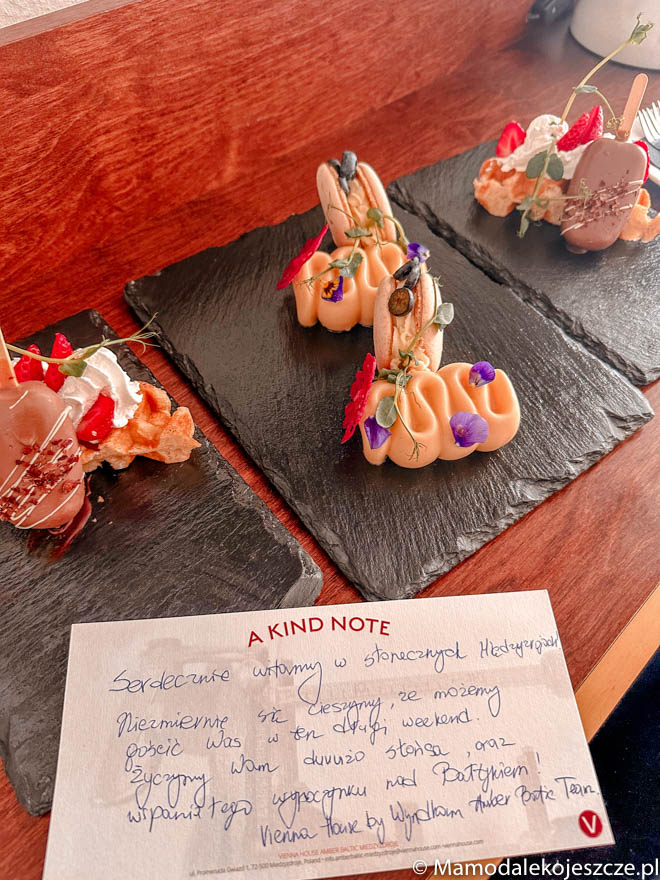 A KIND NOTE
Serdecznie witamy w słonecznych Międzyzdrojach
Niezmiernie się cieszymy, że możemy
gościć Was w ten drugi weekend.
Życzymy Wam duuużo słońca, oraz
wspaniałego wypoczynku nad Bałtykiem!
Vienna House by Wyndham Amber Baltic Team
VIENNA HOUSE AMBER BALTIC MIĘDZYZDROJE
ul. Promenada Gwiazd 1, 72-500 Międzyzdroje, Poland - info.amberbaltic.miedzyzdroje@viennahouse.com · viennahouse.com
V
© Mamodalekojeszcze.pl